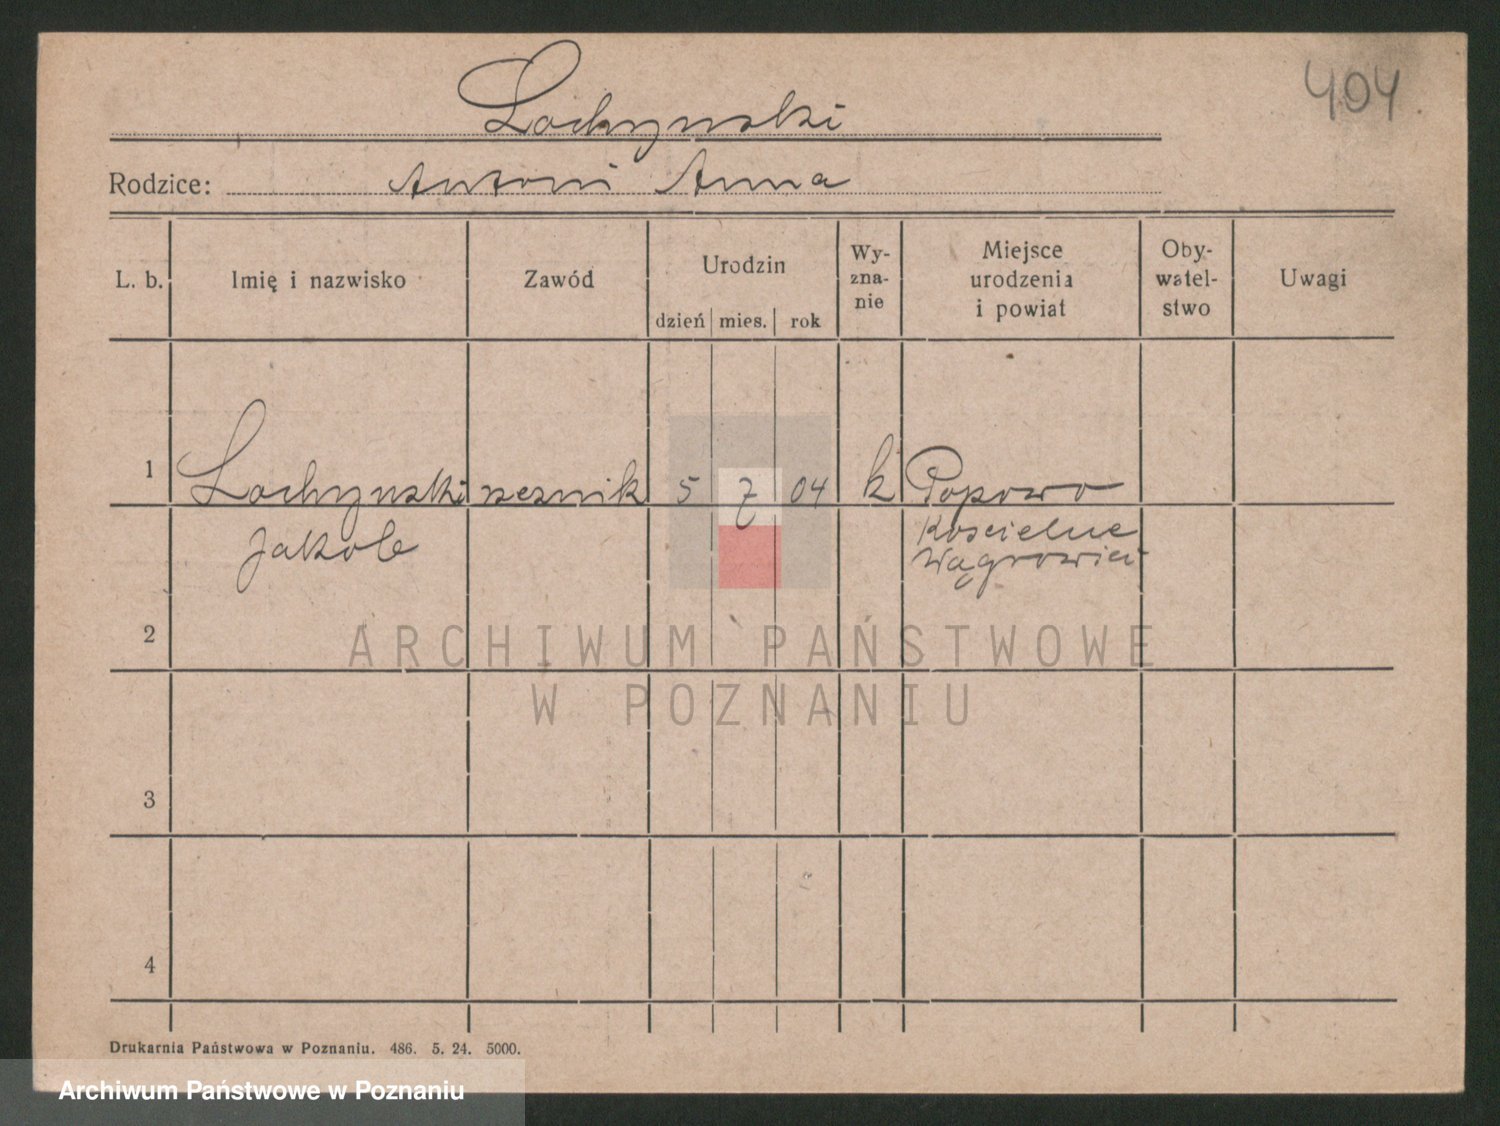 404
Lochynski
Rodzice: Antoni Anna
L. b. Imię i nazwisko Zawód Urodzin dzień mies. rok Wy-zna-nie Miejsce urodzenia i powiat Oby-watel-stwo Uwagi
1 Lochynski rzeznik 5 7 04 k Popowo
Jakob Koscielne
Wągrowiec
2
3
4
ARCHIWUM PAŃSTWOWE
W POZNANIU
Drukarnia Państwowa w Poznaniu. 486. 5. 24. 5000.
Archiwum Państwowe w Poznaniu